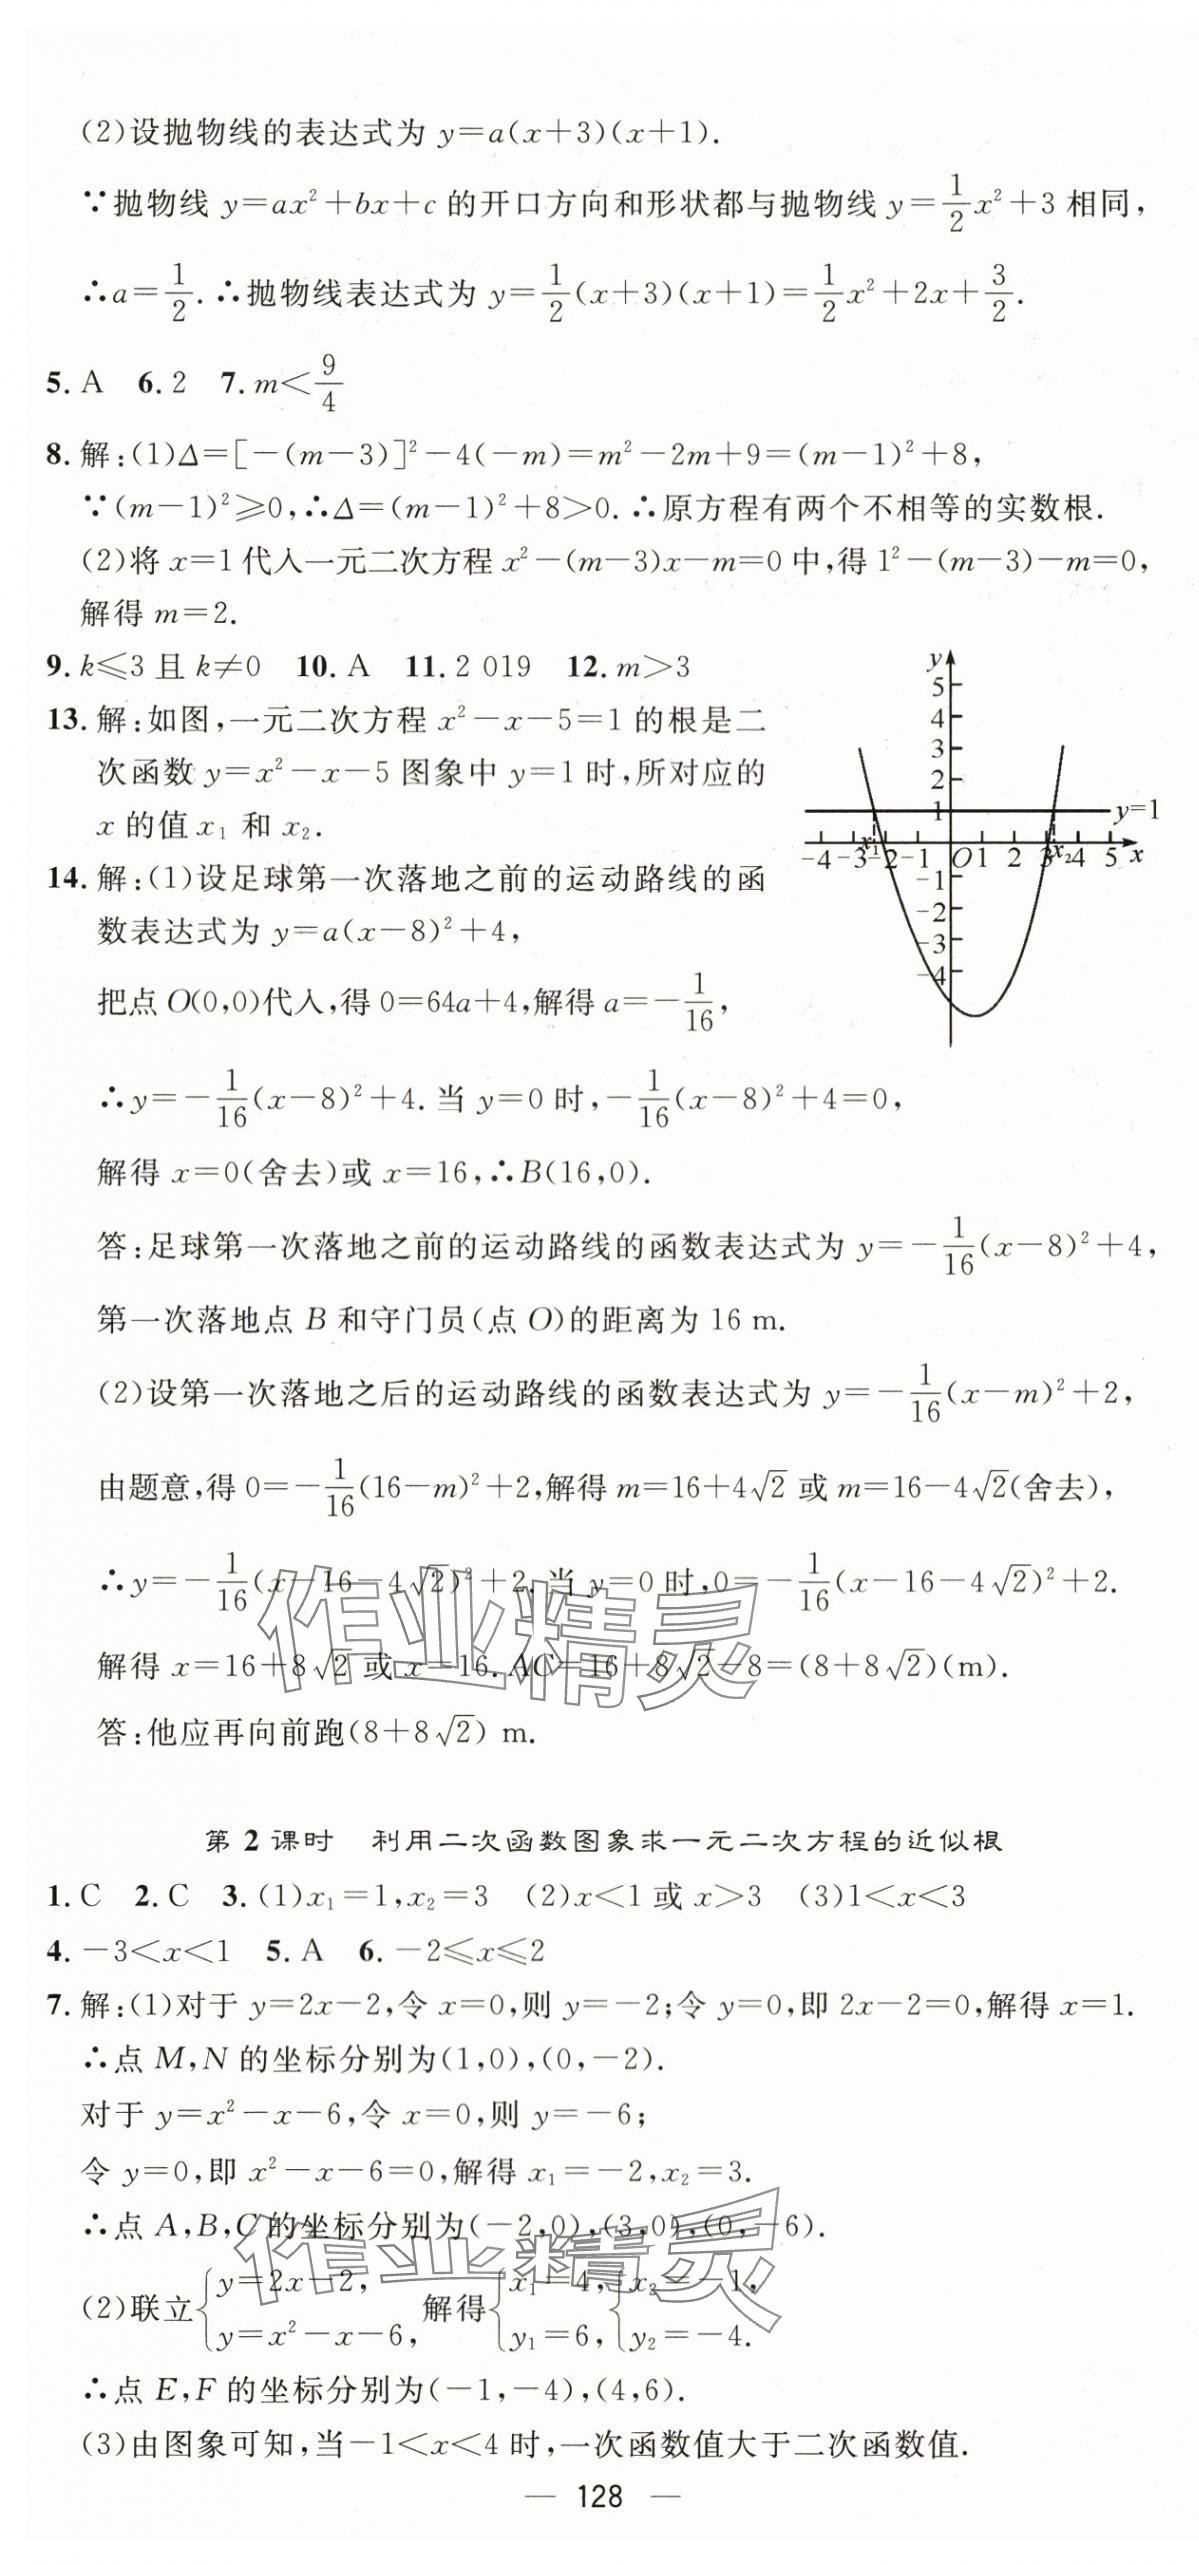 (2)设抛物线的表达式为 y=a(x+3)(x+1).
∵抛物线 y=ax²+bx+c 的开口方向和形状都与抛物线 y=1/2x²+3 相同,
∴a=1/2.∴抛物线表达式为 y=1/2(x+3)(x+1)=1/2x²+2x+3/2.
5. A 6. 2 7. m<9/4
8. 解:(1)Δ=[-(m-3)]²-4(-m)=m²-2m+9=(m-1)²+8,
∵(m-1)²≥0,∴Δ=(m-1)²+8>0.∴原方程有两个不相等的实数根.
(2)将 x=1 代入一元二次方程 x²-(m-3)x-m=0 中,得 1²-(m-3)-m=0,
解得 m=2.
9. k≤3 且 k≠0 10. A 11. 2 019 12. m>3
13. 解:如图,一元二次方程 x²-x-5=1 的根是二
次函数 y=x²-x-5 图象中 y=1 时,所对应的
x 的值 x₁ 和 x₂.
y
5
4
3
2
1
y=1
-4 -3 x₁ -2 -1 O 1 2 3 x₂ 4 5 x
-1
-2
-3
-4
14. 解:(1)设足球第一次落地之前的运动路线的函
数表达式为 y=a(x-8)²+4,
把点 O(0,0)代入,得 0=64a+4,解得 a=-1/16,
∴y=-1/16(x-8)²+4.当 y=0 时,-1/16(x-8)²+4=0,
解得 x=0(舍去)或 x=16,∴B(16,0).
答:足球第一次落地之前的运动路线的函数表达式为 y=-1/16(x-8)²+4,
第一次落地点 B 和守门员(点 O)的距离为 16 m.
(2)设第一次落地之后的运动路线的函数表达式为 y=-1/16(x-m)²+2,
由题意,得 0=-1/16(16-m)²+2,解得 m=16+4√2 或 m=16-4√2(舍去),
∴y=-1/16(x-16-4√2)²+2.当 y=0 时,0=-1/16(x-16-4√2)²+2.
解得 x=16+8√2 或 x=16.AC=16+8√2-8=(8+8√2)(m).
答:他应再向前跑(8+8√2) m.
作业精灵
第 2 课时 利用二次函数图象求一元二次方程的近似根
1. C 2. C 3. (1)x₁=1,x₂=3 (2)x<1 或 x>3 (3)1<x<3
4. -3<x<1 5. A 6. -2≤x≤2
7. 解:(1)对于 y=2x-2,令 x=0,则 y=-2;令 y=0,即 2x-2=0,解得 x=1.
∴点 M,N 的坐标分别为(1,0),(0,-2).
对于 y=x²-x-6,令 x=0,则 y=-6;
令 y=0,即 x²-x-6=0,解得 x₁=-2,x₂=3.
∴点 A,B,C 的坐标分别为(-2,0),(3,0),(0,-6).
作业精灵
(2)联立{y=2x-2, y=x²-x-6, 解得{x₁=4, y₁=6, {x₂=-1, y₂=-4.
∴点 E,F 的坐标分别为(-1,-4),(4,6).
(3)由图象可知,当-1<x<4 时,一次函数值大于二次函数值.
— 128 —